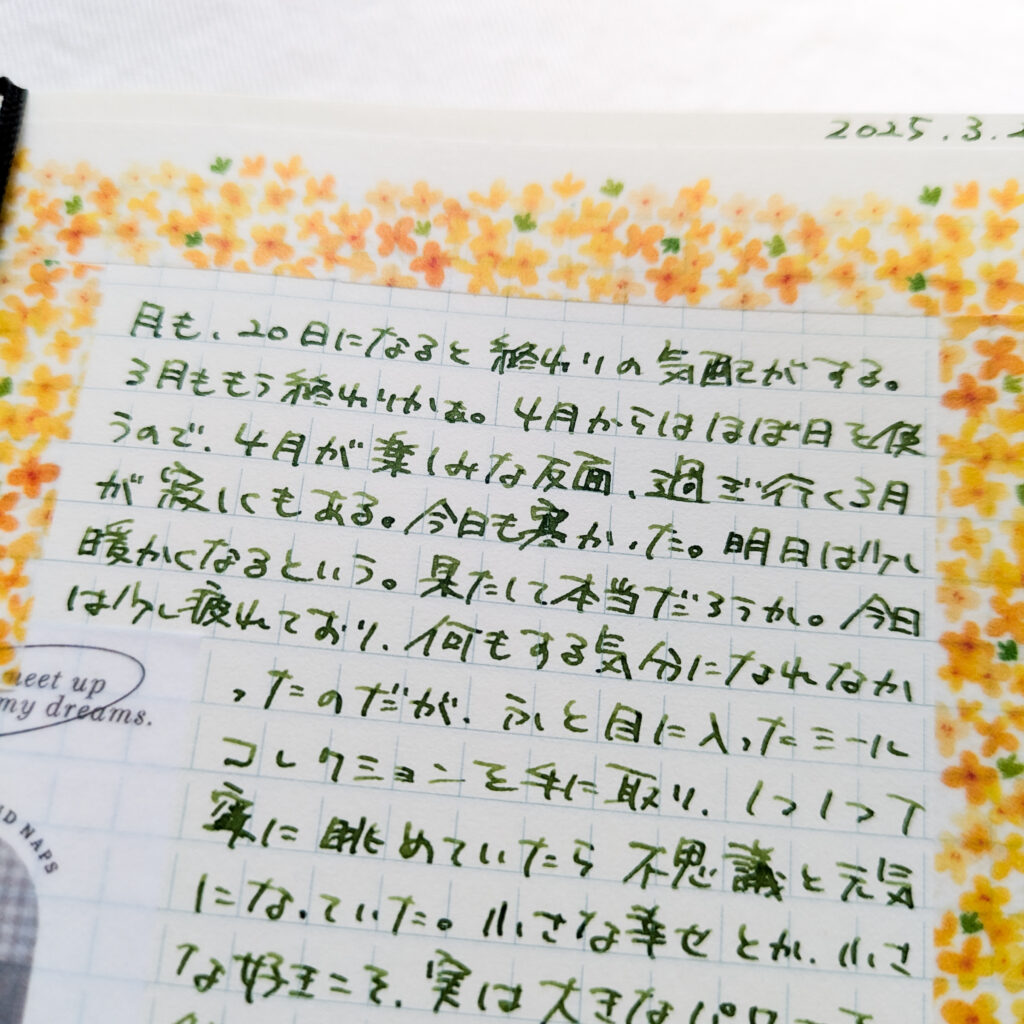 2025.3.2
月も、20日になると終わりの気配がする。
3月ももう終わりかぁ。4月からはほぼ日を使
うので、4月が楽しみな反面、過ぎ行く3月
が寂しくもある。今日も寒かった。明日は少し
暖かくなるという。果たして本当だろうか。今日
は少し疲れており、何もする気分になれなか
ったのだが、ふと目に入ったミール
コレクションを手に取り、1つ1つて
寧に眺めていたら不思議と元気
になっていた。小さな幸せとか、小さ
な好きこそ、実は大きなパワーって
meet up
my dreams.
ND NAPS